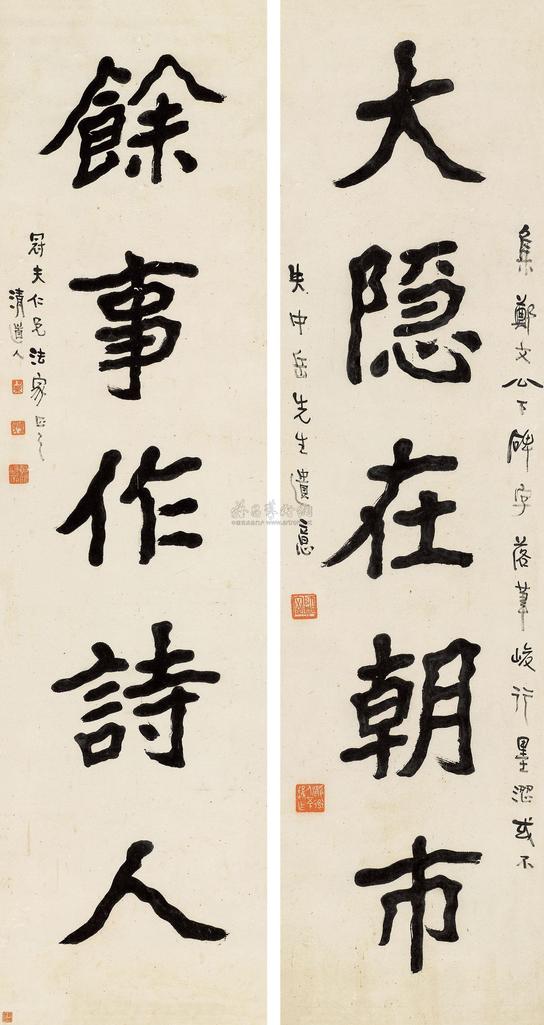 大隐在朝市
集鄭文公下碑字落筆峻行墨澀或不
失中岳先生遺意
餘事作詩人
冠夫仁兄法家正之
清道人